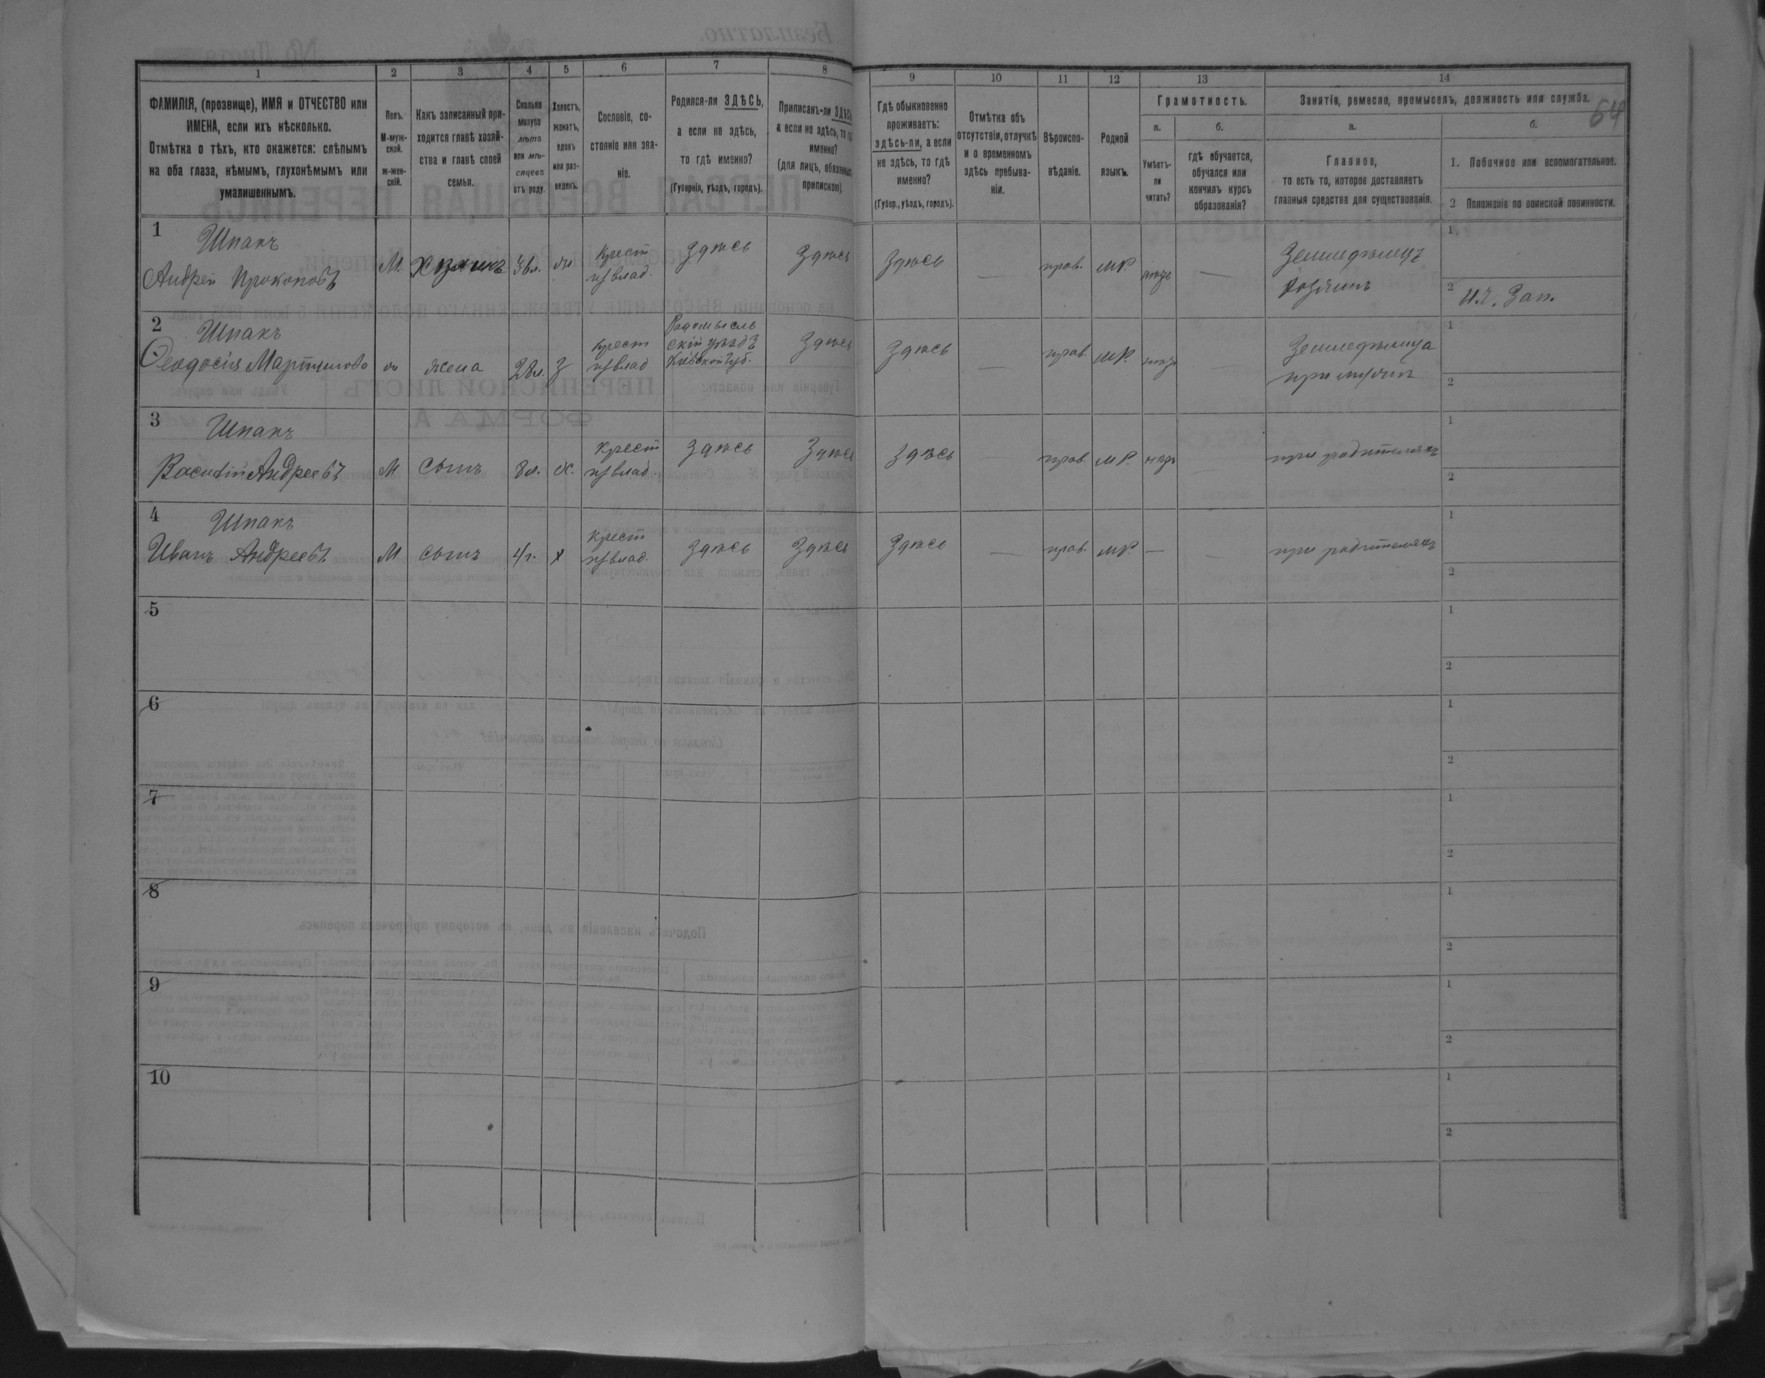 1 2 3 4 5 6 7 8 9 10 11 12 13 14
ФАМИЛІЯ, (прозвище), ИМЯ и ОТЧЕСТВО или ИМЕНА, если ихъ нѣсколько.
Отмѣтка о тѣхъ, кто окажется: слѣпымъ на оба глаза, нѣмымъ, глухонѣмымъ или умалишеннымъ.
Полъ.
М-мужской.
ж-женскій.
Какъ записанный приходится главѣ хозяйства и главѣ своей семьи.
Сколько минуло лѣтъ или мѣсяцевъ отъ роду.
Холостъ, женатъ, вдовъ или разведенъ.
Сословіе, состояніе или званіе.
Родился-ли ЗДѢСЬ, а если не здѣсь, то гдѣ именно?
(Губернія, уѣздъ, городъ).
Приписанъ-ли ЗДѢСЬ, а если не здѣсь, то гдѣ именно?
(для лицъ, обязанныхъ припискою)
Гдѣ обыкновенно проживаетъ: здѣсь-ли, а если не здѣсь, то гдѣ именно?
(Губер., уѣздъ, городъ).
Отмѣтка объ отсутствіи, отлучкѣ и о временномъ здѣсь пребываніи.
Вѣроисповѣданіе.
Родной языкъ.
Грамотность.
а.
Умѣетъ-ли читать?
б.
гдѣ обучается, обучался или кончилъ курсъ образованія?
Занятіе, ремесло, промыселъ, должность или служба.
64
а.
Главное,
то есть то, которое доставляетъ главныя средства для существованія.
б.
1. Побочное или вспомогательное.
2 Положеніе по воинской повинности.
1 Шпакъ
Андрей Прокоповъ М хозяинъ л. Крест здѣсь Здѣсь Здѣсь — прав. МР. — Земледѣлецъ
хозяинъ
1
2 Зап.
2 Шпакъ
Феодосія Мартинова жена 28 л. З Крест Радомысль
скій уѣздъ
Кіевской губ. Здѣсь Здѣсь — прав МР. — Земледѣлица
при мужѣ
1
2
3 Шпакъ
Василій Андреевъ М сынъ 8 л. Х. Крест здѣсь Здѣсь здѣсь — прав. МР. — при родителяхъ
1
2
4 Шпакъ
Иванъ Андреевъ М сынъ 4 г. х Крест здѣсь Здѣсь Здѣсь — прав. МР — — при родителяхъ
1
2
5
1
2
6
1
2
7
1
2
8
1
2
9
1
2
10
1
2